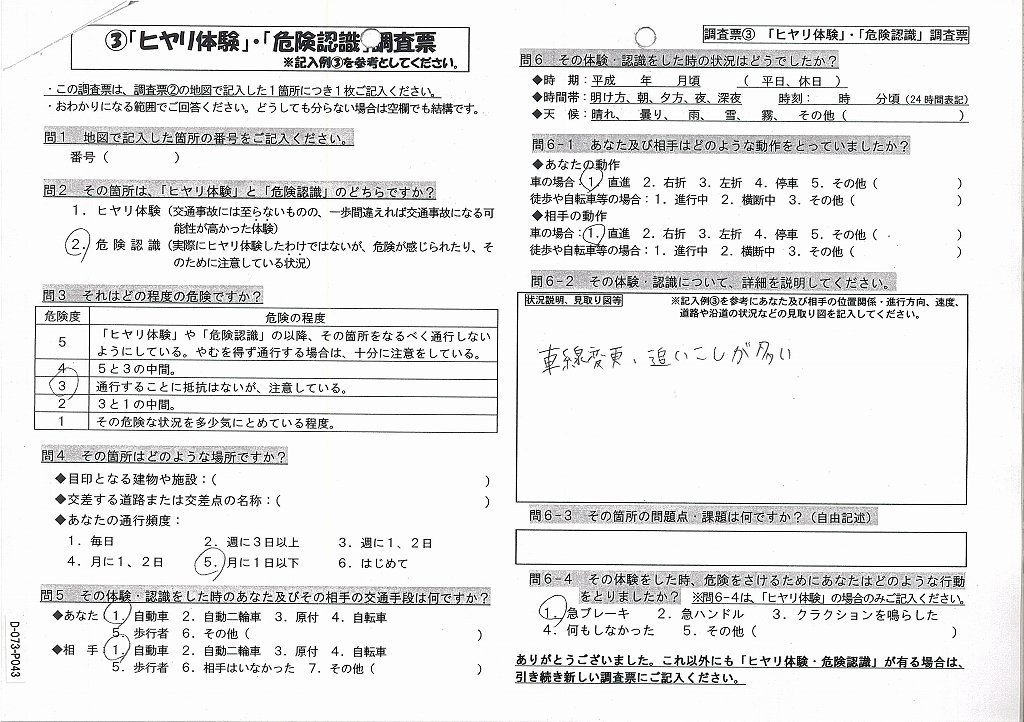 ③「ヒヤリ体験」・「危険認識」調査票
※記入例③を参考としてください。
・この調査票は、調査票②の地図で記入した1箇所につき1枚ご記入ください。
・おわかりになる範囲でご回答ください。どうしても分らない場合は空欄でも結構です。
問1 地図で記入した箇所の番号をご記入ください。
番号( )
問2 その箇所は、「ヒヤリ体験」と「危険認識」のどちらですか?
1.ヒヤリ体験(交通事故には至らないものの、一歩間違えれば交通事故になる可
能性が高かった体験)
2.危険認識(実際にヒヤリ体験したわけではないが、危険が感じられたり、そ
のために注意している状況)
問3 それはどの程度の危険ですか?
危険度 危険の程度
5 「ヒヤリ体験」や「危険認識」の以降、その箇所をなるべく通行しない
ようにしている。やむを得ず通行する場合は、十分に注意をしている。
4 5と3の中間。
3 通行することに抵抗はないが、注意している。
2 3と1の中間。
1 その危険な状況を多少気にとめている程度。
問4 その箇所はどのような場所ですか?
◆目印となる建物や施設:( )
◆交差する道路または交差点の名称:( )
◆あなたの通行頻度:
1.毎日 2.週に3日以上 3.週に1、2日
4.月に1、2日 5.月に1日以下 6.はじめて
問5 その体験・認識をした時のあなた及びその相手の交通手段は何ですか?
◆あなた 1.自動車 2.自動二輪車 3.原付 4.自転車
5.歩行者 6.その他( )
◆相 手 1.自動車 2.自動二輪車 3.原付 4.自転車
5.歩行者 6.相手はいなかった 7.その他( )
D-073-P043
調査票③ 「ヒヤリ体験」・「危険認識」調査票
問6 その体験・認識をした時の状況はどうでしたか?
◆時 期:平成 年 月頃 ( 平日、休日 )
◆時間帯:明け方、朝、夕方、夜、深夜 時刻: 時 分頃(24時間表記)
◆天 候:晴れ、 曇り、 雨、 雪、 霧、 その他( )
問6-1 あなた及び相手はどのような動作をとっていましたか?
◆あなたの動作
車の場合:1.直進 2.右折 3.左折 4.停車 5.その他( )
徒歩や自転車等の場合:1.進行中 2.横断中 3.その他( )
◆相手の動作
車の場合:1.直進 2.右折 3.左折 4.停車 5.その他( )
徒歩や自転車等の場合:1.進行中 2.横断中 3.その他( )
問6-2 その体験・認識について、詳細を説明してください。
状況説明、見取り図等 ※記入例③を参考にあなた及び相手の位置関係・進行方向、速度、
道路や沿道の状況などの見取り図を記入してください。
車線変更、追いこしが多い
問6-3 その箇所の問題点・課題は何ですか?(自由記述)
問6-4 その体験をした時、危険をさけるためにあなたはどのような行動
をとりましたか? ※問6-4は、「ヒヤリ体験」の場合のみご記入ください。
1.急ブレーキ 2.急ハンドル 3.クラクションを鳴らした
4.何もしなかった 5.その他( )
ありがとうございました。これ以外にも「ヒヤリ体験・危険認識」が有る場合は、
引き続き新しい調査票にご記入ください。